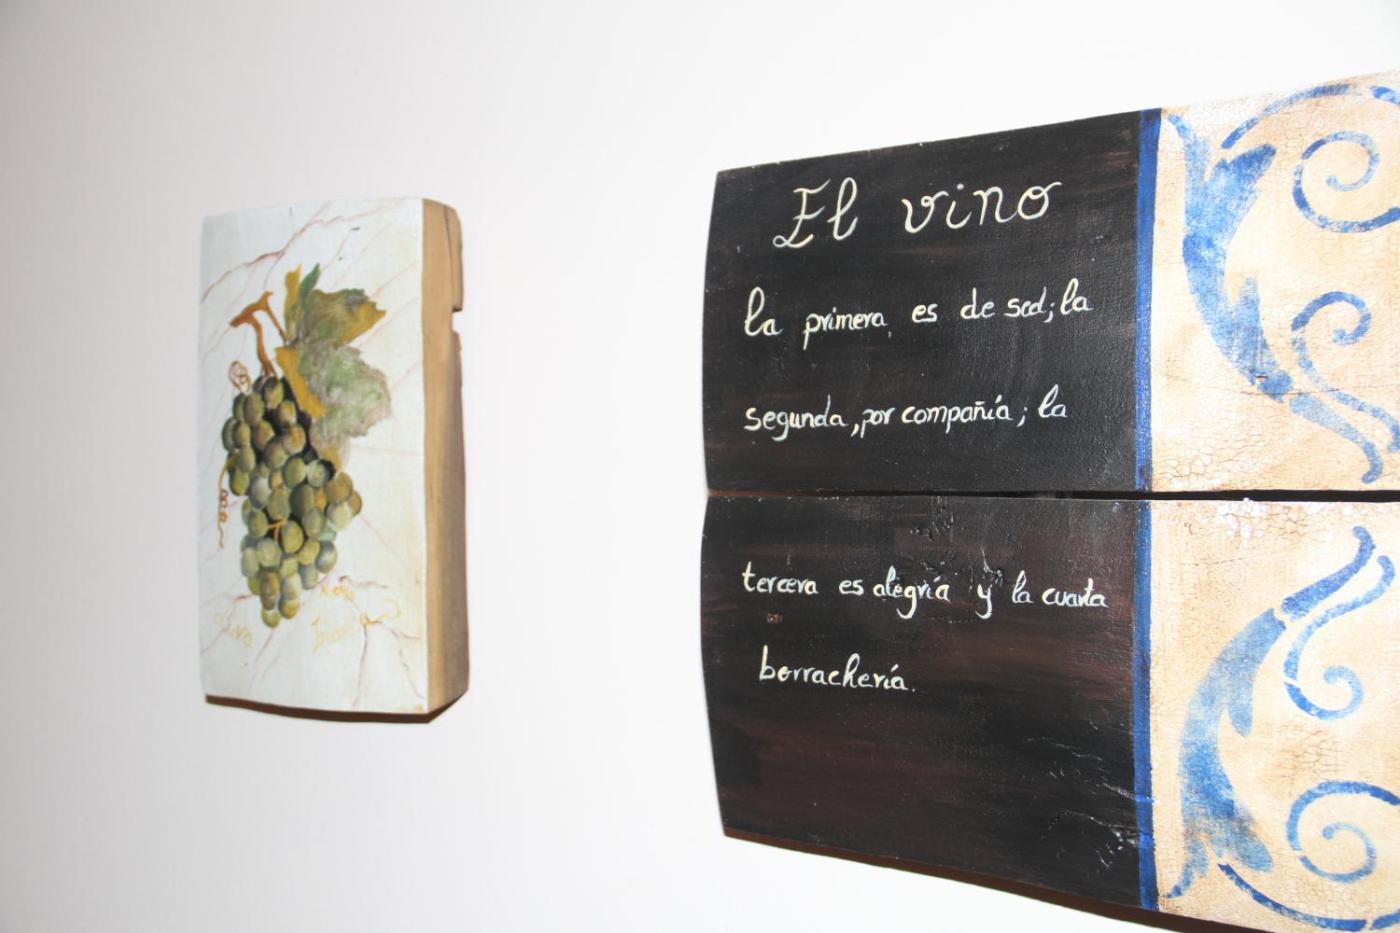 El vino
la primera es de sed; la
segunda, por compañía; la
tercera es alegría y la cuarta
borrachería.
uva